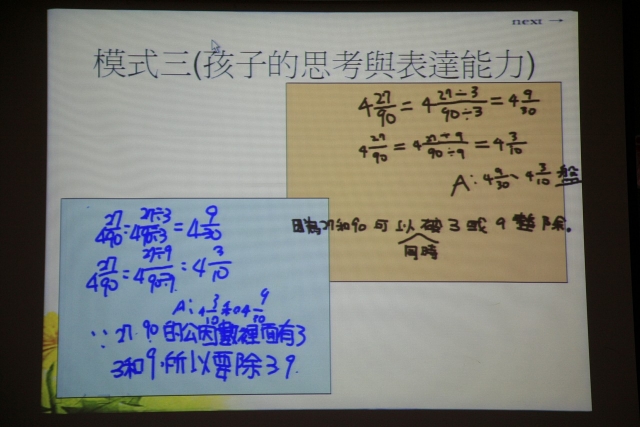 next →
模式三(孩子的思考與表達能力)
4 27/90 = 4 27÷3/90÷3 = 4 9/30
4 27/90 = 4 27÷9/90÷9 = 4 3/10
A: 4 9/30、4 3/10 盤
因為27和90可以被3或9整除。
同時
4 27/90 = 4 27÷3/90÷3 = 4 9/30
4 27/90 = 4 27÷9/90÷9 = 4 3/10
A: 4 3/10 和 4 9/30
∵27 90的公因數裡面有3
3和9,所以要除3 9.